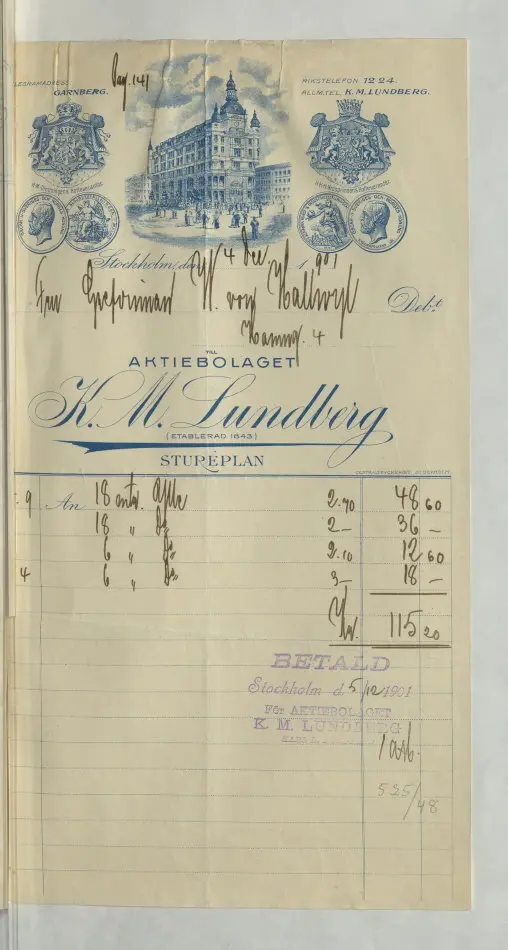 Pag. 141
GARNBERG.
RIKSTELEFON 1224.
ALLM. TEL. K. M. LUNDBERG.
Stockholm, den 4 Dec 1901
W. von Hallwyl Debt
Hamng. 4
TILL
AKTIEBOLAGET
K. M. Lundberg
(ETABLERAD 1843)
STUREPLAN
9 An 18 2.70 48 60
18 „ do 2— 36 —
6 „ do 2.10 12 60
4 6 „ do 3— 18 —
Kr. 115 20
BETALD
Stockholm d. 5/12 1901
För AKTIEBOLAGET
K. M. LUNDBERG
525/48